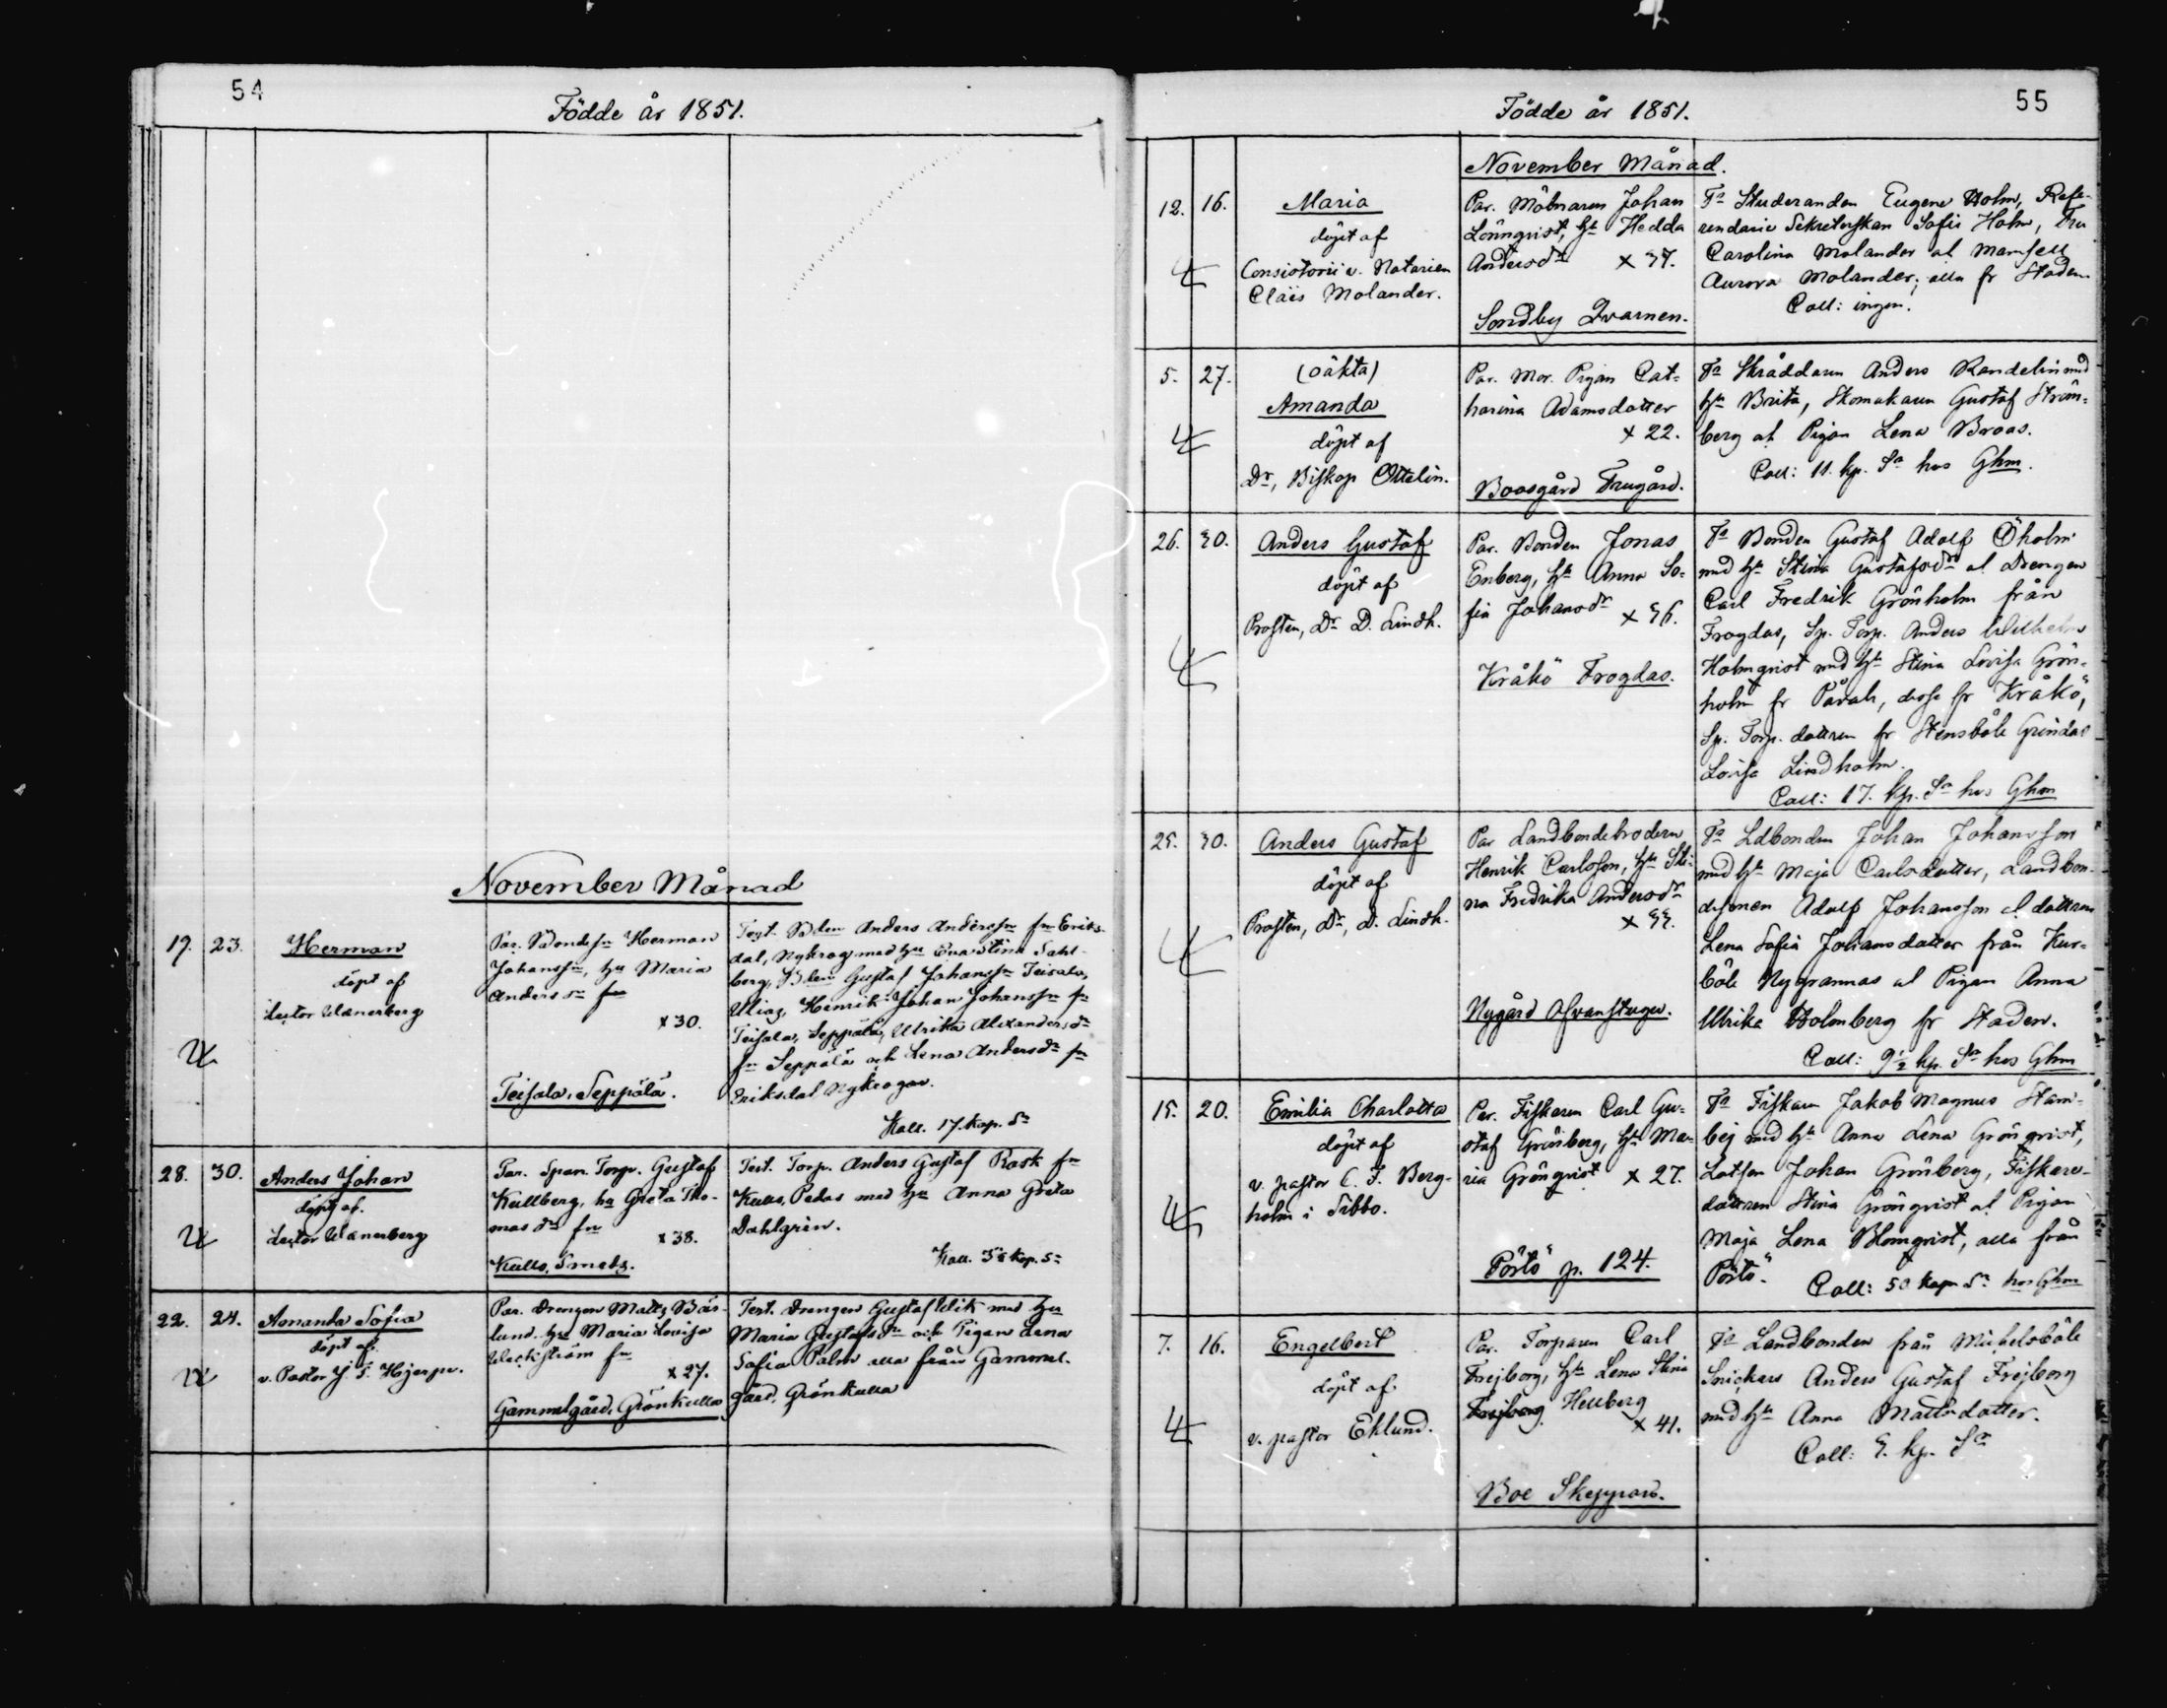 54
Födde år 1851.
November Månad
19. 23. Herman
döpt af
Lector Wanerberg
Par. Bondes:n Herman
Johanss:n, h:u Maria
Anders d:r
x 30.
Teisala, Seppälä.
Test. Anders Anderss:n f:n Eriks-
dal, Nykrog med h:u Eva Stina Dahl-
berg, Gustaf Johanss:n Teisala,
Uliaz, Henrik Johan Johanss:n f:n
Teisala, Seppälä, Ulrika Alexandersd:r
f:n Seppälä och Lena Andersd:r f:n
Eriksdal Nykrogar.
Koll. 17. kop. S:r
28. 30. Anders Johan
döpt af.
Lector Wanerberg
Par. Span. Torp. Gustaf
Kullberg, hu Greta Tho-
mas d:r f:n
x 38.
Kullo, Smeds.
Test. Torp. Anders Gustaf Rask f:n
Kullo, Pedas med h:u Anna Greta
Dahlgrén.
Koll. kop. S:r
22. 24. Amanda Sofia
döpt af.
v. Pastor Hjerpe.
Par. Drengen Matts Bäs-
lund. h:u Maria Lovisa
Weckström f:n
x 27.
Gammelgård, Grönkulla
Test. Drengen Gustaf Wik med h:u
Maria Gustafs d:r och Pigan Lena
Sofia Palm alla från Gammel-
gård, Grönkulla
55
Födde år 1851.
November Månad.
12. 16. Maria
döpt af
Consistorii v. Notarien
Claës Molander.
Par. Möbnaren Johan
Lönnqvist, h:u Hedda
Andersd:r x 37.
Sondby Qvarnen.
F:a Studeranden Eugene Holm, Refe-
rendarie Sekreterskan Sofie Holm, Fru
Carolina Molander at Mamsell
Aurora Molander; alla fr Staden
Coll: ingen.
5. 27. (oäkta)
Amanda
döpt af
D:r, Biskop Ottelin.
Par. Mor. Pigan Cat-
harina Adamsdotter
x 22.
Boasgård Frugård.
F:a Skräddaren Anders Randelin med
h:u Brita, Skomakaren Gustaf Ström-
berg at Pigan Lena Broas.
Coll: 11. kp. S:r hos Ghm.
26. 30. Anders Gustaf
döpt af
Prosten, D:r D. Lindh.
Par. Bonden Jonas
Enberg, h:u Anna So-
fia Johansd:r x 36.
Kråkö Frogdas.
F:a Bonden Gustaf Adolf Öholm
med h:u Stina Gustafsd:r at Drengen
Carl Fredrik Grönholm från
Frogdas, Sp. Torp. Anders Wilhelm
Holmqvist med h:u Stina Lovisa Grön-
holm fr Pàvals, desse fr Kråkö,
Sp. Torp. dottren fr Stensböle Grindas
Lovisa Lindholm.
Coll: 17. kp. S:r hos Ghm
25. 30. Anders Gustaf
döpt af
Prosten, D:r, D. Lindh.
Par Landbondebrodern
Henrik Carlsson, h:u Sti-
na Fredrika Andersd:r
x 33.
Nygård Ofvanstugu.
F:a Ldbonden Johan Johansson
med h:u Maja Carlsdotter, Landbon-
desonen Adolf Johansson at dottren
Lena Sofia Johansdotter från Kur-
böle Nygrannas at Pigan Anna
Ulrika Holmberg fr Staden.
Coll: 9½ kp. S:r hos Ghm
15. 20. Emilia Charlotta
döpt af
v. pastor C. F. Berg-
holm i Sibbo.
Par. Fiskaren Carl Gu-
staf Grönberg, h:u Ma-
ria Grönqvist x 27.
Pörtö p. 124.
F:a Fiskaren Jakob Magnus Stam-
bej med h:u Anna Lena Grönqvist,
Lotsen Johan Grönberg, Fiskare-
dottren Stina Grönqvist at Pigan
Maja Lena Blomqvist, alla från
Pörtö. Coll: 50 kop. S:r hos Ghm
7. 16. Engelbert
döpt af
v. pastor Eklund.
Par. Torparen Carl
Frejborg, h:u Lena Stina
Frejborg Hellberg
x 41.
Boe Skeppars.
F:a Landbonden från Mickelsböle
Snickars Anders Gustaf Frejborg
med h:u Anna Mattsdotter.
Coll: 3. kp. S:r